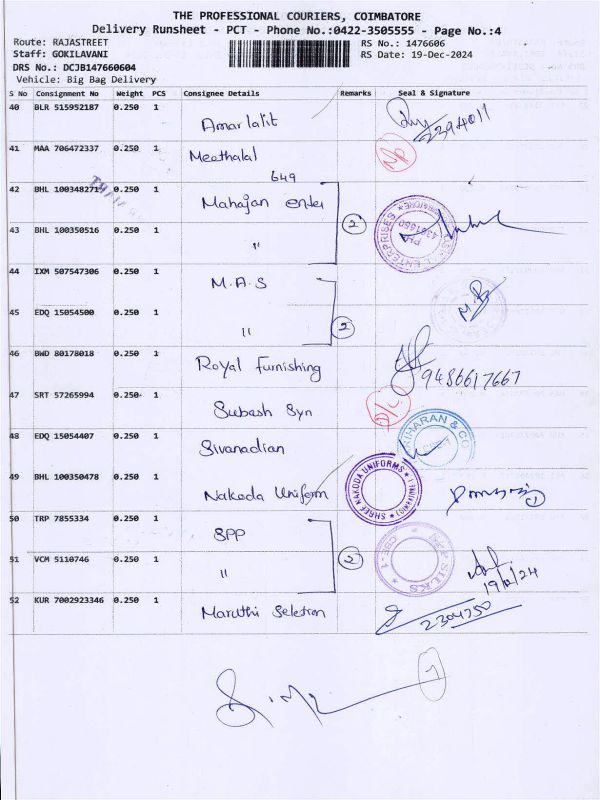 THE PROFESSIONAL COURIERS, COIMBATORE
Delivery Runsheet - PCT - Phone No.:0422-3505555 - Page No.:4
Route: RAJASTREET
RS No.: 1476606
Staff: GOKILAVANI
RS Date: 19-Dec-2024
DRS No.: DCJB147660604
Vehicle: Big Bag Delivery
S No Consignment No Weight PCS Consignee Details Remarks Seal & Signature
40 BLR 515952187 0.250 1 Amarlalit 2394011
41 MAA 706472337 0.250 1 Meethalal
649
42 BHL 100348271 0.250 1 Mahajan enter
2
43 BHL 100350516 0.250 1 "
ENTERPRISES
44 IXM 507547306 0.250 1 M.A.S
45 EDQ 15054500 0.250 1 " 2
46 BWD 80178018 0.250 1 Royal Furnishing 9486617667
47 SRT 57265994 0.250 1 Subash Syn D/L
48 EDQ 15054407 0.250 1 Sivanadian
HARAN & CO
49 BHL 100350478 0.250 1 Nakoda Uniform
SHREE NAKODA UNIFORMS
1
50 TRP 7855334 0.250 1 SPP
2
51 VCM 5110746 0.250 1 "
CBE-1
19/12/24
52 KUR 7002923346 0.250 1 Maruthi Seletion 2304750